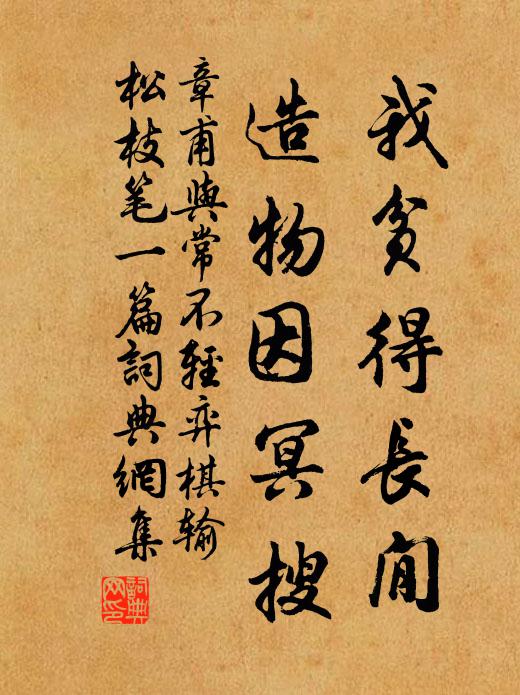 我貧得長閒
造物因冥搜
章甫與常不輕弈棋輸
松枝笔一篇詞典網集
詞典网印